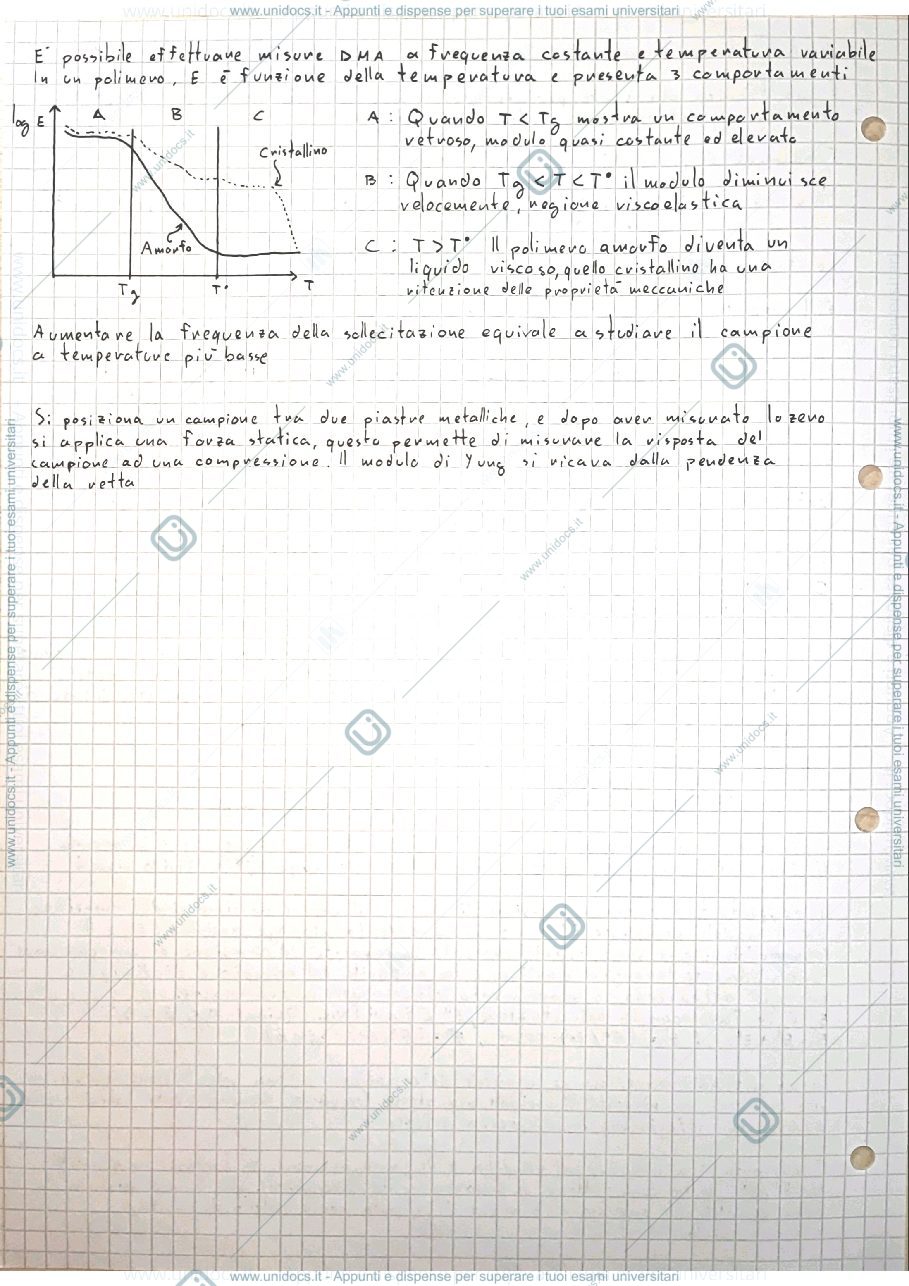 www.unidocs.it - Appunti e dispense per superare i tuoi esami universitari
E' possibile effettuare misure DMA a frequenza costante e temperatura variabile
In un polimero, E è funzione della temperatura e presenta 3 comportamenti
log E
A B C
Cristallino
Amorfo
Tg T° T
A : Quando T < Tg mostra un comportamento
vetroso, modulo quasi costante ed elevato
B : Quando Tg < T < T° il modulo diminuisce
velocemente, regione viscoelastica
C : T > T° Il polimero amorfo diventa un
liquido viscoso, quello cristallino ha una
ritenzione delle proprietà meccaniche
Aumentare la frequenza della sollecitazione equivale a studiare il campione
a temperature più basse
Si posiziona un campione tra due piastre metalliche, e dopo aver misurato lo zero
si applica una forza statica, questo permette di misurare la risposta del
campione ad una compressione. Il modulo di Yung si ricava dalla pendenza
della retta
www.unidocs.it - Appunti e dispense per superare i tuoi esami universitari
www.unidocs.it - Appunti e dispense per superare i tuoi esami universitari
www.unidocs.it
www.unidocs.it
www.unidocs.it
www.unidocs.it
www.unidocs.it
www.unidocs.it
www.unidocs.it - Appunti e dispense per superare i tuoi esami universitari